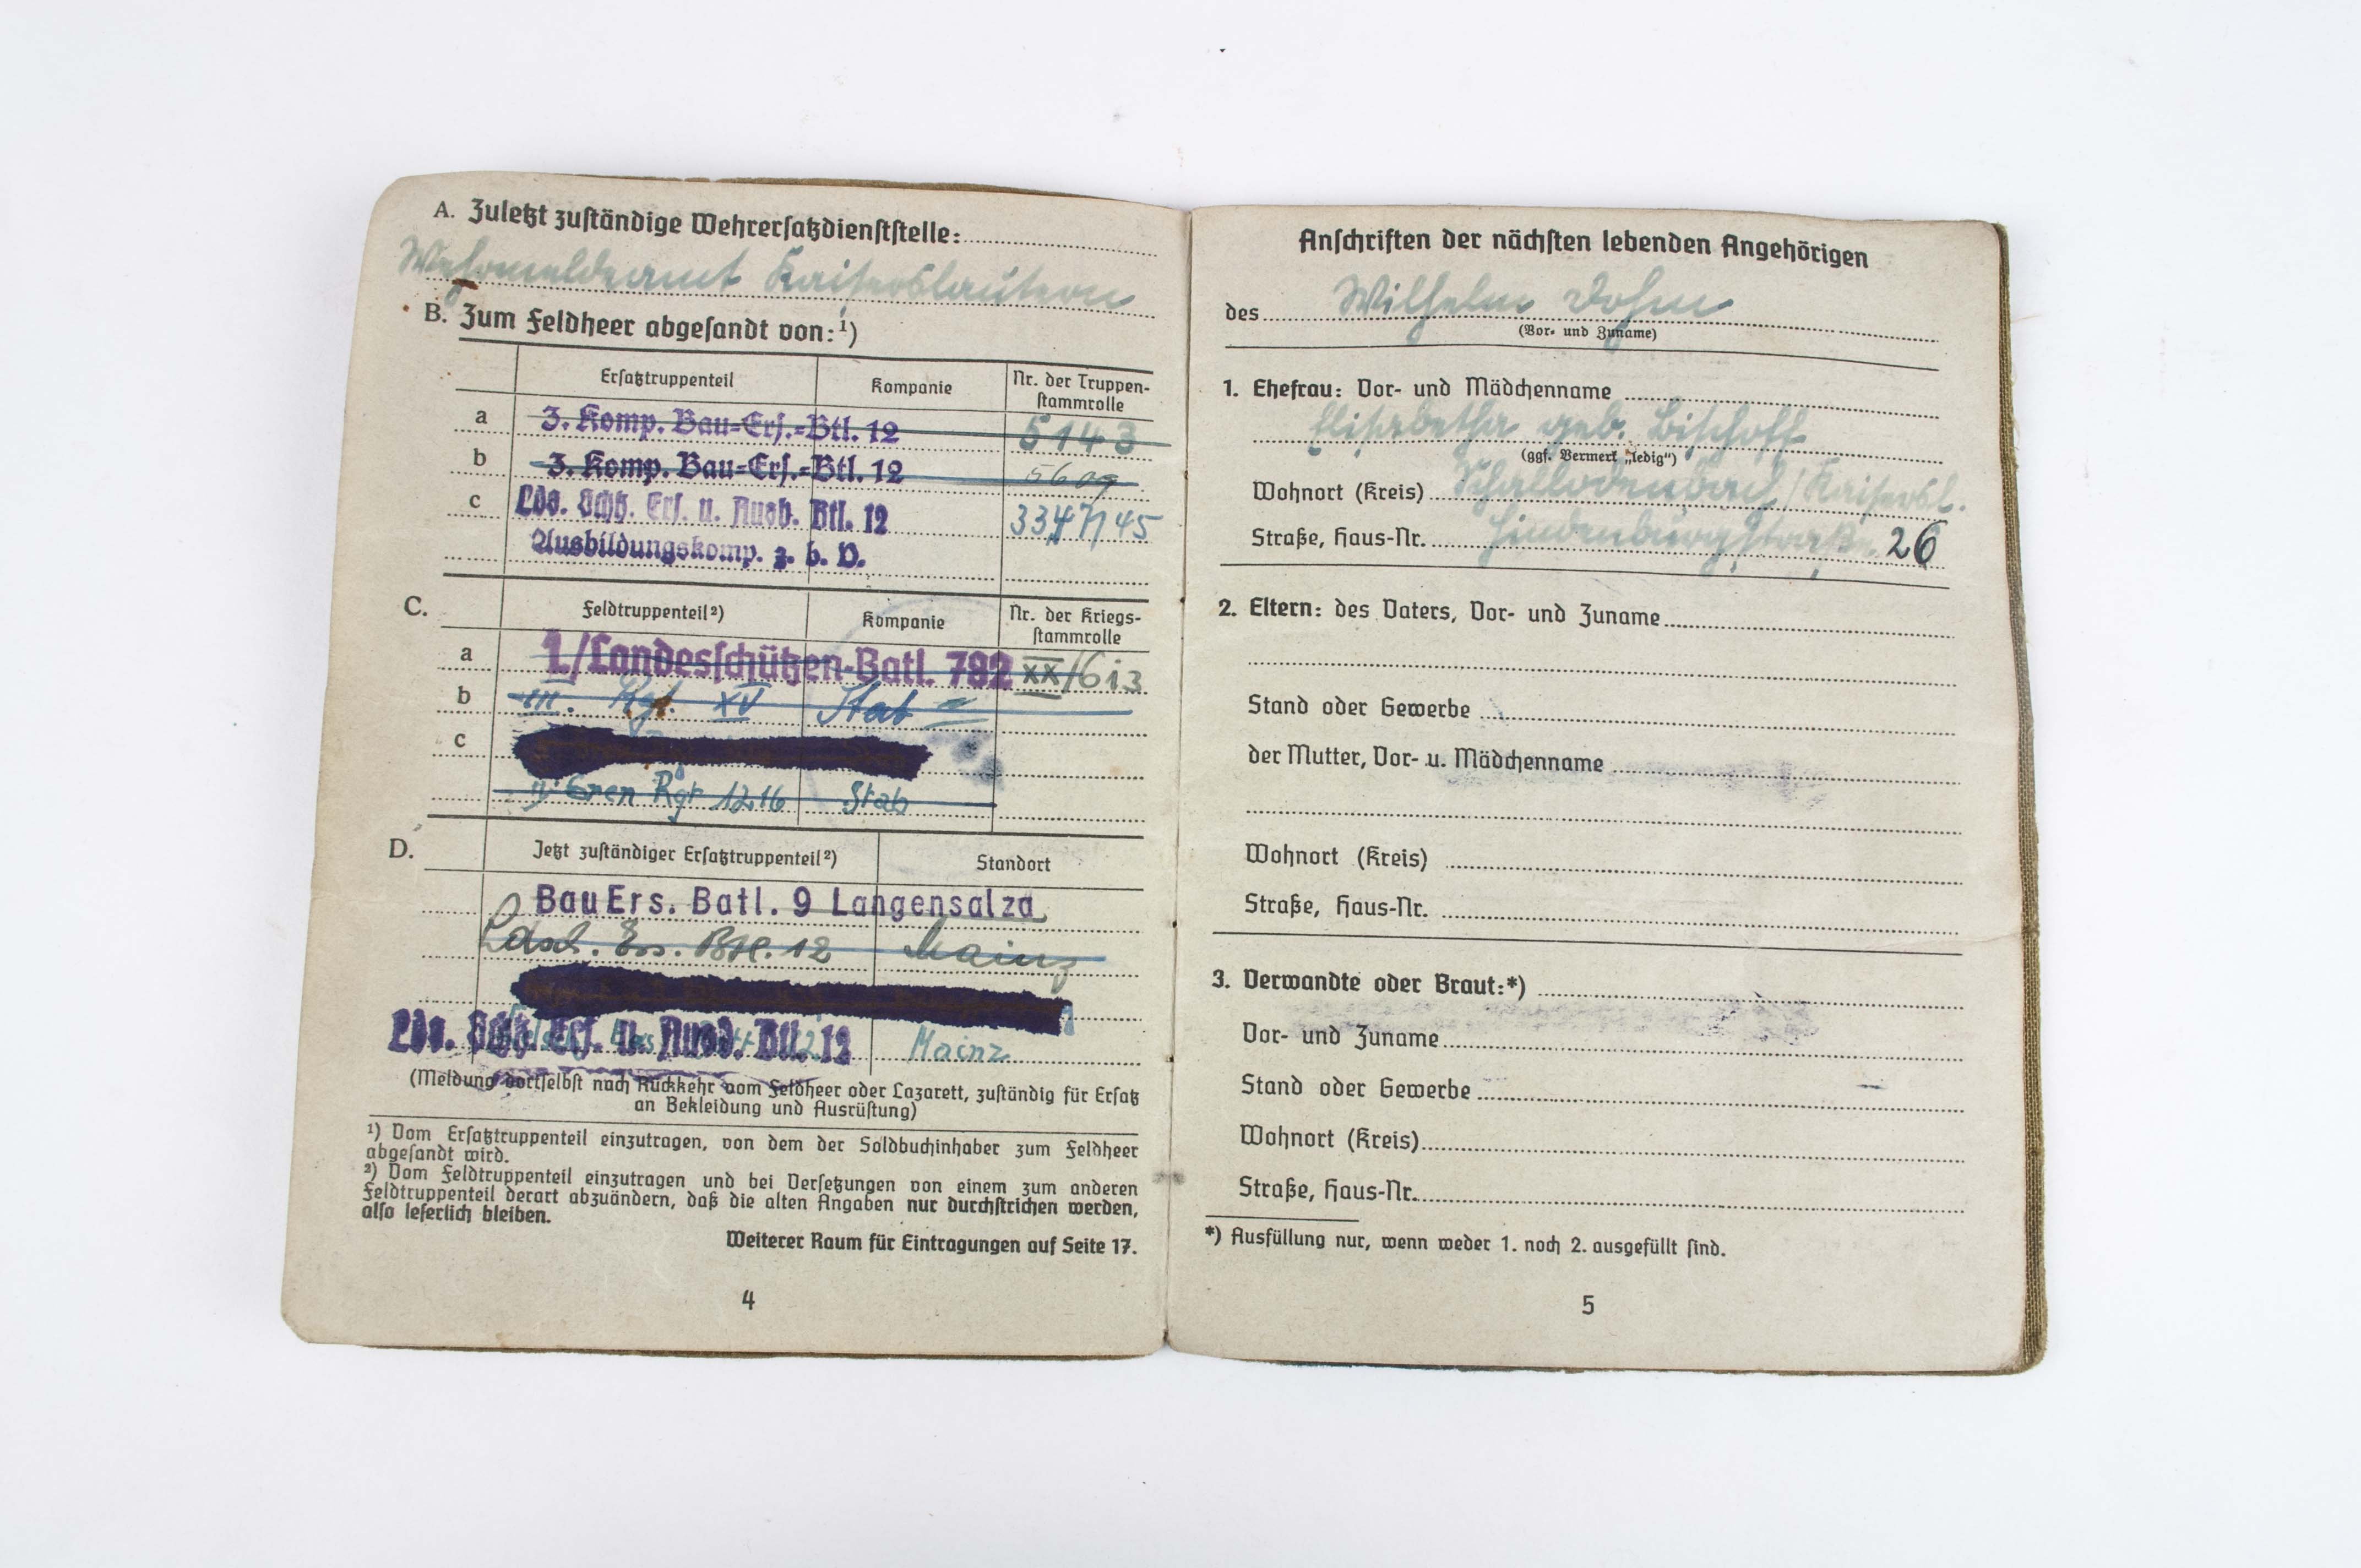 A. Zuletzt zuständige Wehrersatzdienststelle:
Wehrmeldeamt Kaiserslautern
B. Zum Feldheer abgesandt von:¹)
Ersatztruppenteil Kompanie Nr. der Truppen-
stammrolle
a 3. Komp. Bau-Ers.-Btl. 12 5143
b 3. Komp. Bau-Ers.-Btl. 12 5609
c Lds. Schtz. Ers. u. Ausb. Btl. 12
Ausbildungskomp. z. b. V.
C. Feldtruppenteil²) Kompanie Nr. der Kriegs-
stammrolle
a 1./Landesschützen-Batl. 782 XX/613
b III. Rgt. XV Stab
c
Gren Rgt 1216 Stab
D. Jetzt zuständiger Ersatztruppenteil²) Standort
Bau Ers. Batl. 9 Langensalza
Ldsch. Ers. Btl. 12 Mainz
Lds. Schtz. Ers. u. Ausb. Btl. 12 Mainz
(Meldung dortselbst nach Rückkehr vom Feldheer oder Lazarett, zuständig für Ersatz
an Bekleidung und Ausrüstung)
¹) Vom Ersatztruppenteil einzutragen, von dem der Soldbuchinhaber zum Feldheer
abgesandt wird.
²) Vom Feldtruppenteil einzutragen und bei Versetzungen von einem zum anderen
Feldtruppenteil derart abzuändern, daß die alten Angaben nur durchstrichen werden,
also leserlich bleiben.
Weiterer Raum für Eintragungen auf Seite 17.
4
Anschriften der nächsten lebenden Angehörigen
des Wilhelm Dohm
(Vor- und Zuname)
1. Ehefrau: Vor- und Mädchenname
Elisabetha geb. Bischoff
(ggf. Vermerk „ledig")
Wohnort (Kreis) Schallodenbach/Kaisersl.
Straße, Haus-Nr. Hindenburgstraße 26
2. Eltern: des Vaters, Vor- und Zuname
Stand oder Gewerbe
der Mutter, Vor- u. Mädchenname
Wohnort (Kreis)
Straße, Haus-Nr.
3. Verwandte oder Braut:*)
Vor- und Zuname
Stand oder Gewerbe
Wohnort (Kreis)
Straße, Haus-Nr.
*) Ausfüllung nur, wenn weder 1. noch 2. ausgefüllt sind.
5